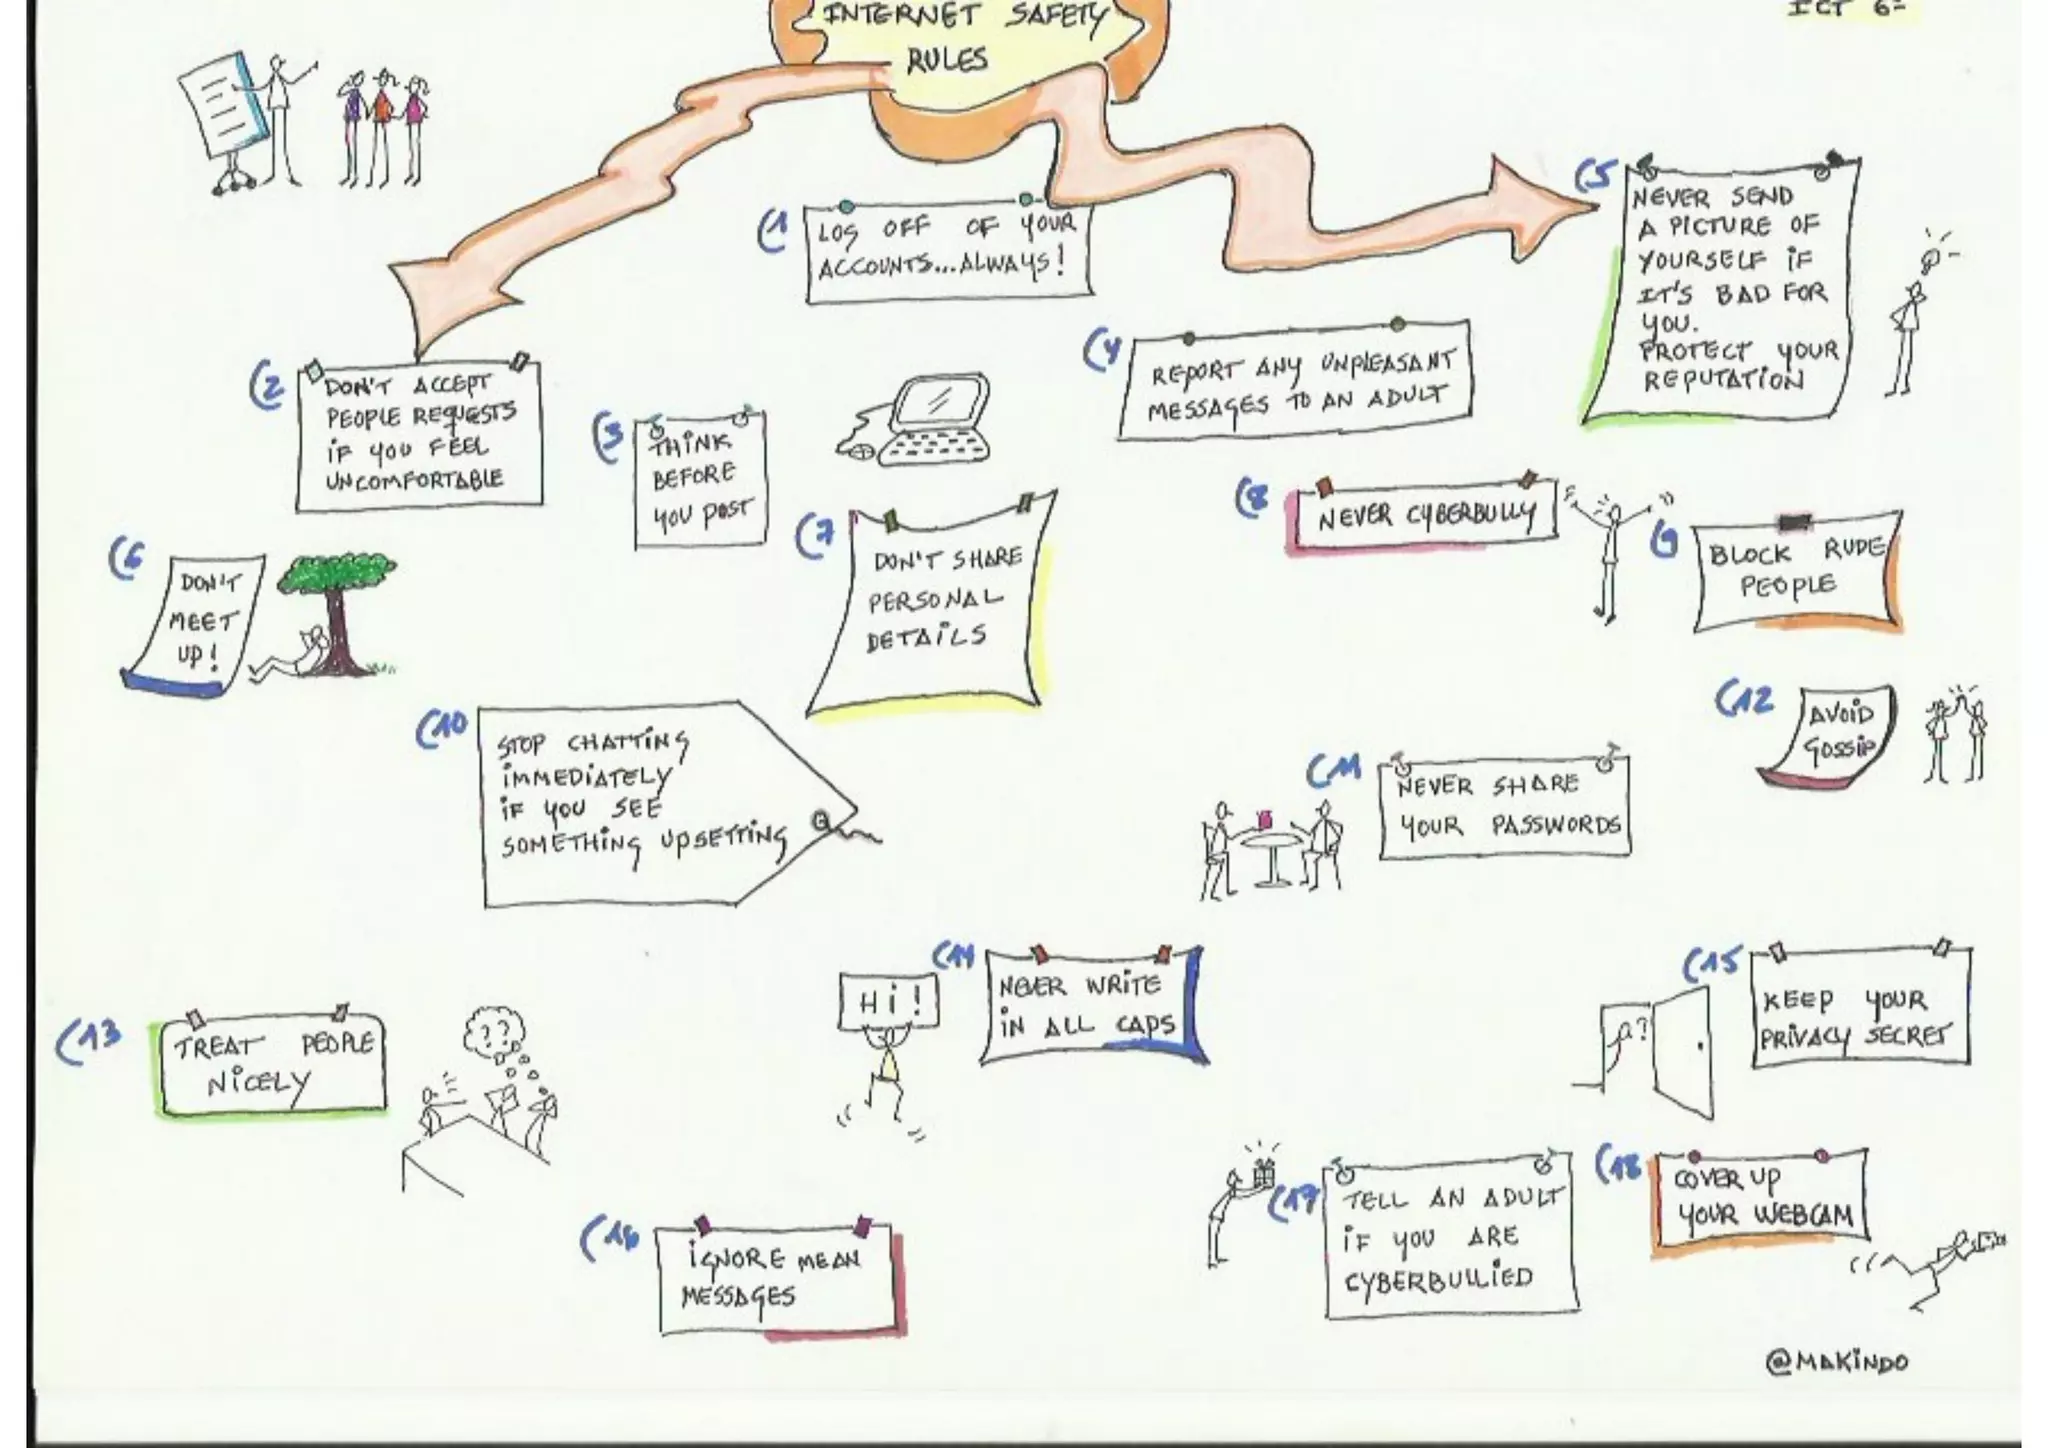 INTERNET SAFETY
RULES
ICT 6-
(1
LOG OFF OF YOUR
ACCOUNTS...ALWAYS!
(2
DON'T ACCEPT
PEOPLE REQUESTS
IF YOU FEEL
UNCOMFORTABLE
(3
THINK
BEFORE
YOU POST
(4
REPORT ANY UNPLEASANT
MESSAGES TO AN ADULT
(5
NEVER SEND
A PICTURE OF
YOURSELF IF
IT'S BAD FOR
YOU.
PROTECT YOUR
REPUTATION
(6
DON'T
MEET
UP!
(7
DON'T SHARE
PERSONAL
DETAILS
(8
NEVER CYBERBULLY
(9
BLOCK RUDE
PEOPLE
(10
STOP CHATTING
IMMEDIATELY
IF YOU SEE
SOMETHING UPSETTING
(11
NEVER SHARE
YOUR PASSWORDS
(12
AVOID
GOSSIP
(13
TREAT PEOPLE
NICELY
??
Hi!
(14
NEVER WRITE
IN ALL CAPS
(15
KEEP YOUR
PRIVACY SECRET
?
(16
IGNORE MEAN
MESSAGES
(17
TELL AN ADULT
IF YOU ARE
CYBERBULLIED
(18
COVER UP
YOUR WEBCAM
@MAKINDO